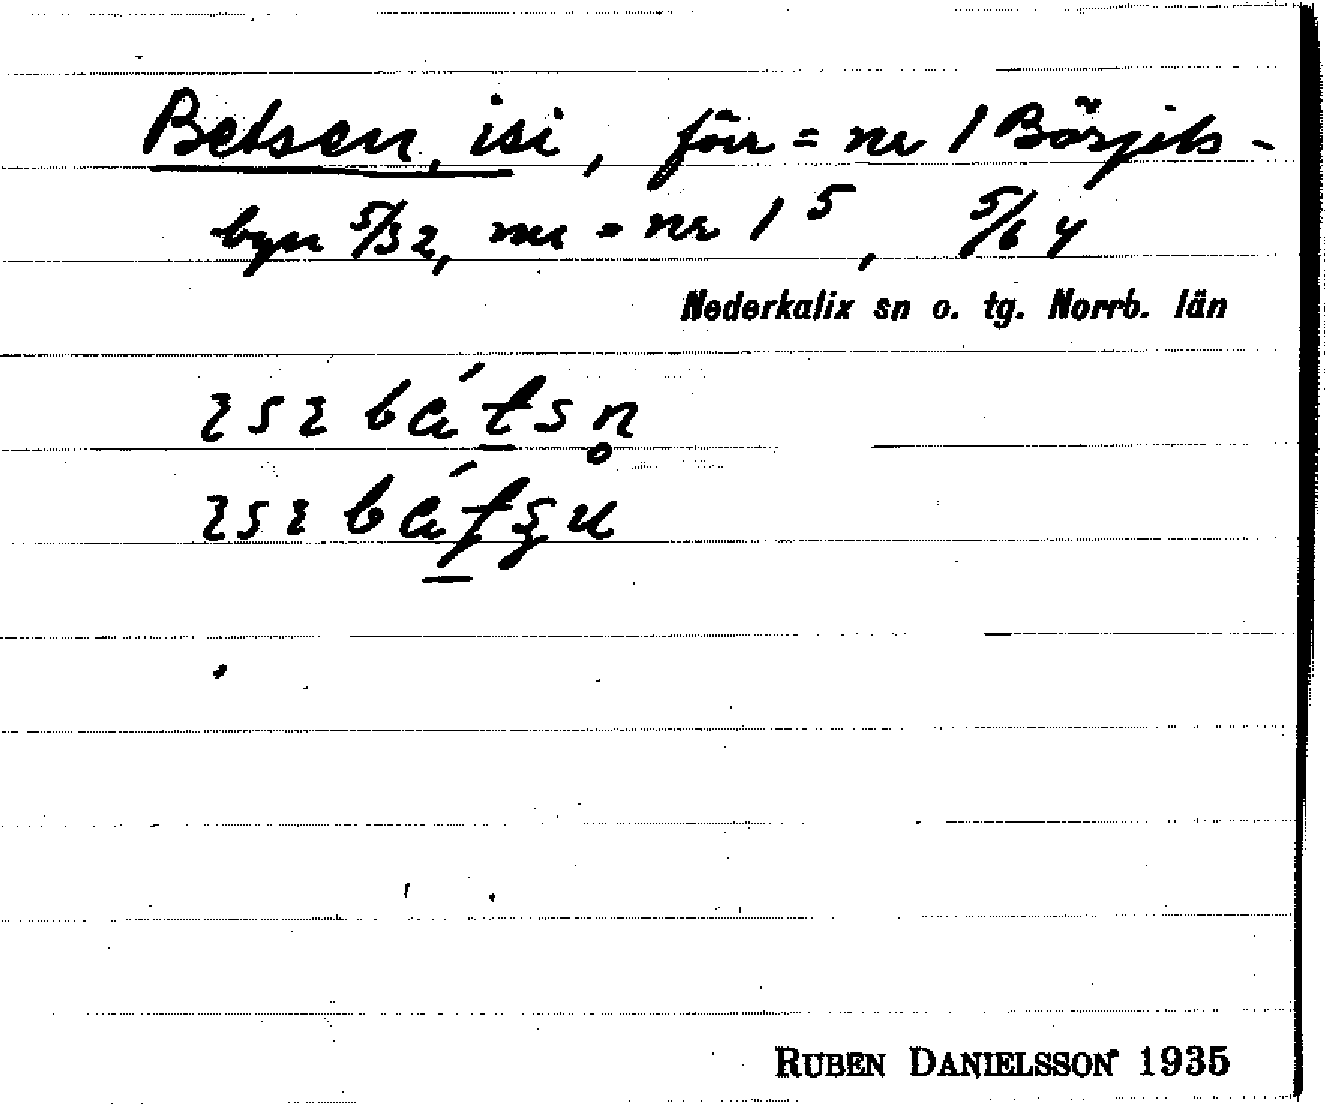 Betsen, isi, förr = nr 1 Börjels-
byn 5/32, nu = nr 1 5, 5/64
Nederkalix sn o. tg. Norrb. län
ısı bátsn̥
RUBEN DANIELSSON 1935